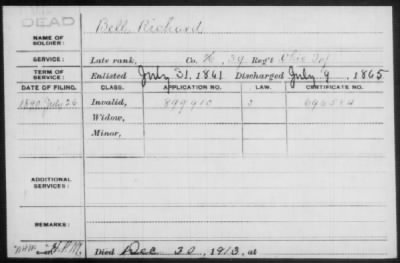 DEAD
NAME OF SOLDIER: Bell Richard
SERVICE: Late rank, Co. K, 39 Reg't Ohio Inf
TERM OF SERVICE: Enlisted July 31, 1861 Discharged July 9, 1865
DATE OF FILING. CLASS. APPLICATION NO. LAW. CERTIFICATE NO.
1890 July 26 Invalid, 899910
Widow,
Minor,
ADDITIONAL SERVICES:
REMARKS:
Died Dec 30, 1913, at